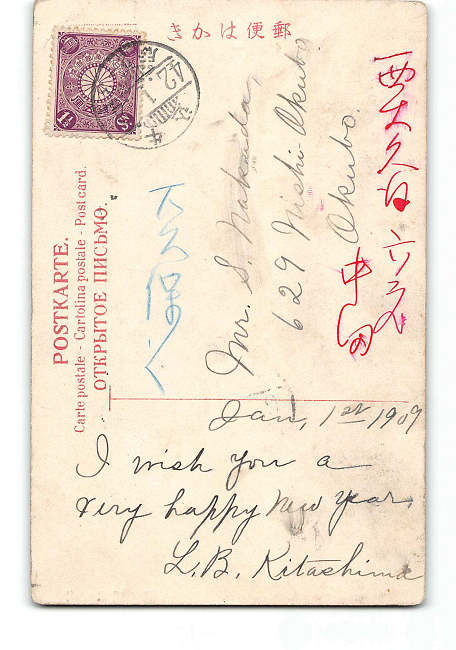 きかは便郵
POSTKARTE.
Carte postale - Cartolina postale - Post card.
ОТКРЫТОЕ ПИСЬМО.
1½ Sn
42.1.
Mr. S. Nakada,
629 Nishi-Okubo
Okubo.
西大久保 六二九
中田
大久保
Jan, 1st 1909
I wish you a
very happy New Year,
L.B. Kitashima